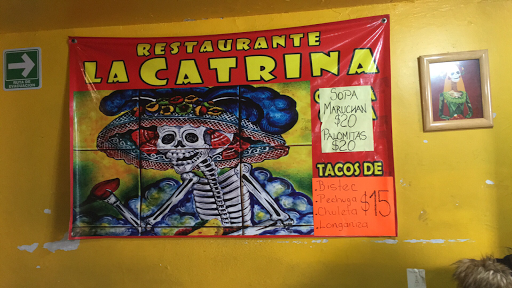 RUTA DE
EVACUACIÓN
RESTAURANTE
LA CATRINA
SOPA
MARUCHAN
$20
PALOMITAS
$20
TACOS DE
.Bistec
.Pechuga
.Chuleta
.Longaniza
$15